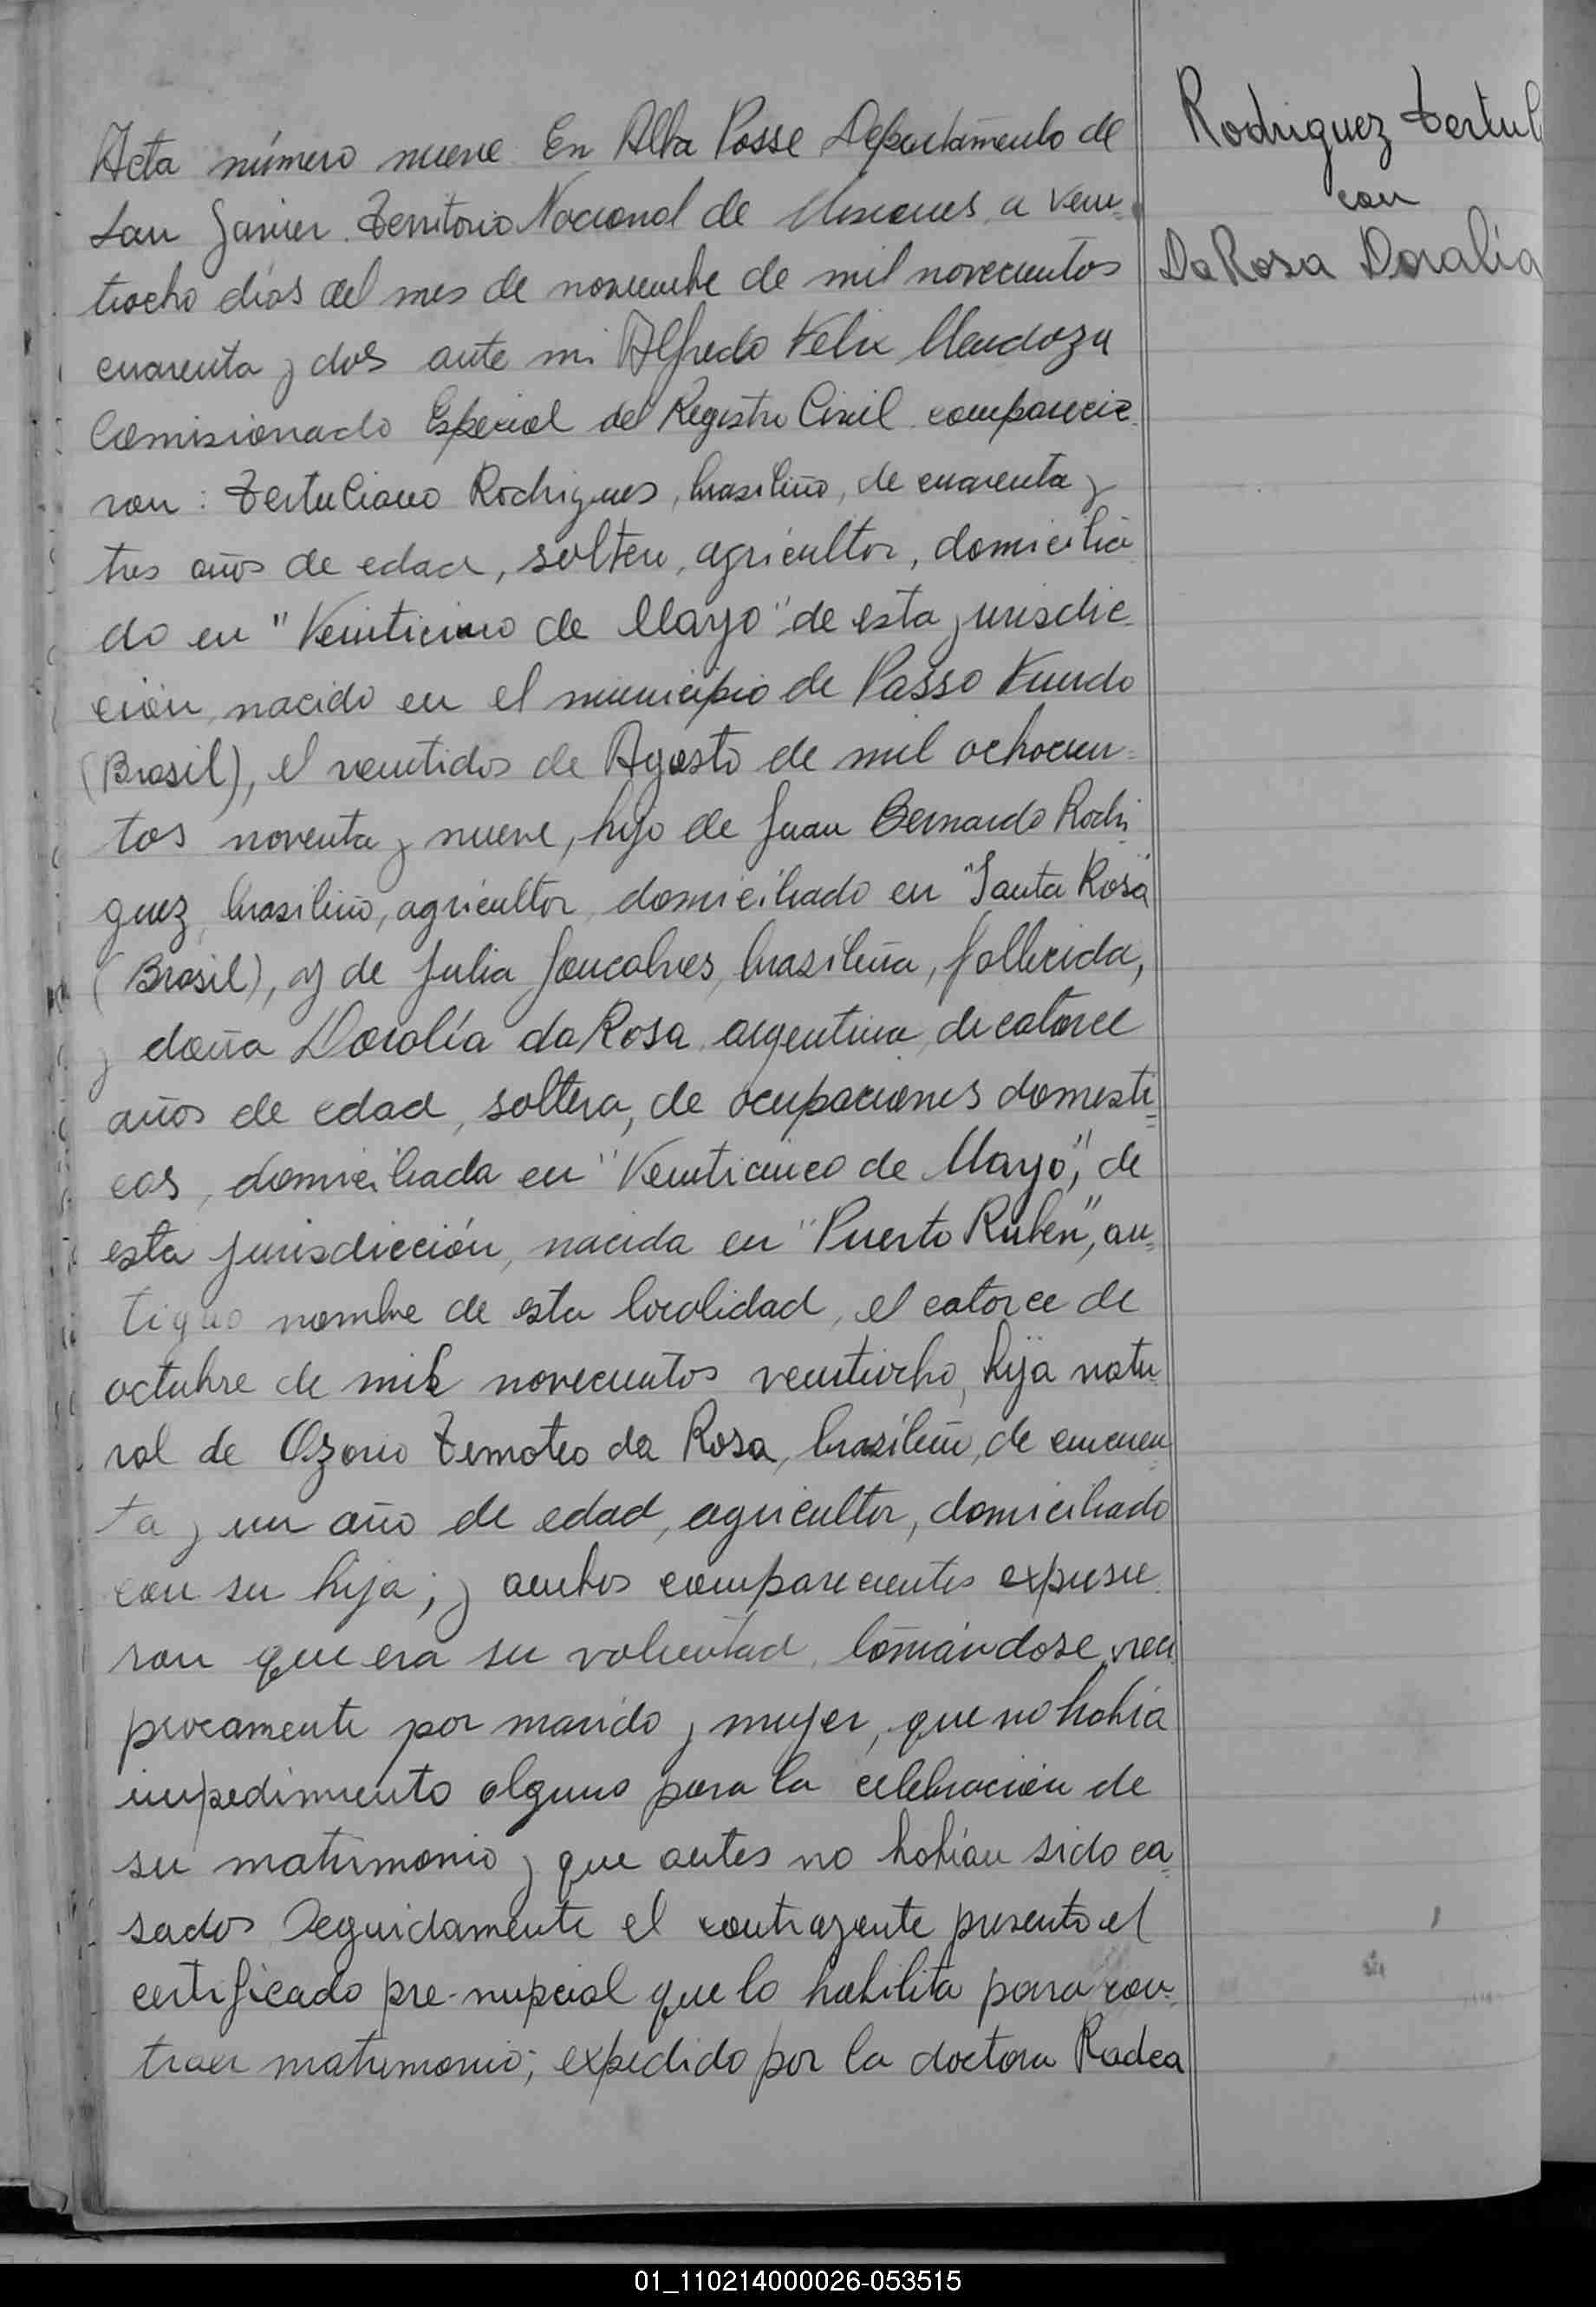 Rodriguez Tertul
con
Da Rosa Doralia
Acta número nueve. En Alba Posse Departamento de
San Javier. Territorio Nacional de Misiones, a vein-
tiocho días del mes de noviembre de mil novecientos
cuarenta y dos ante mi Alfredo Felix Mendoza
Comisionado Especial del Registro Civil comparecie-
ron: Tertuliano Rodrigues, brasileño, de cuarenta y
tres años de edad, soltero, agricultor, domicilia-
do en "Veinticinco de Mayo" de esta jurisdic-
ción, nacido en el municipio de Passo Fundo
(Brasil), el veintidos de Agosto de mil ochocien-
tos noventa y nueve, hijo de Juan Bernardo Rodri
guez, brasileño, agricultor, domiciliado en "Santa Rosa"
(Brasil), y de Julia Joncalves, brasileña, fallecida,
y doña Doralía da Rosa, argentina, de catorce
años de edad, soltera, de ocupaciones domesti-
cas, domiciliada en "Veinticinco de Mayo", de
esta jurisdicción, nacida en "Puerto Ruben", an-
tiguo nombre de esta localidad, el catorce de
octubre de mil novecientos veintiocho, hija natu
ral de Ozorio Temoteo da Rosa, brasileño, de cincuen
ta y un año de edad, agricultor, domiciliado
con su hija; y ambos comparecientes expusie
ron que era su voluntad, tomándose reci
procamente por marido y mujer, que no había
impedimiento alguno para la celebración de
su matrimonio y que antes no habían sido ca-
sados. Seguidamente el contrayente presento el
certificado pre-nupcial que lo habilita para con-
traer matrimonio; expedido por la doctora Radea
01_110214000026-053515